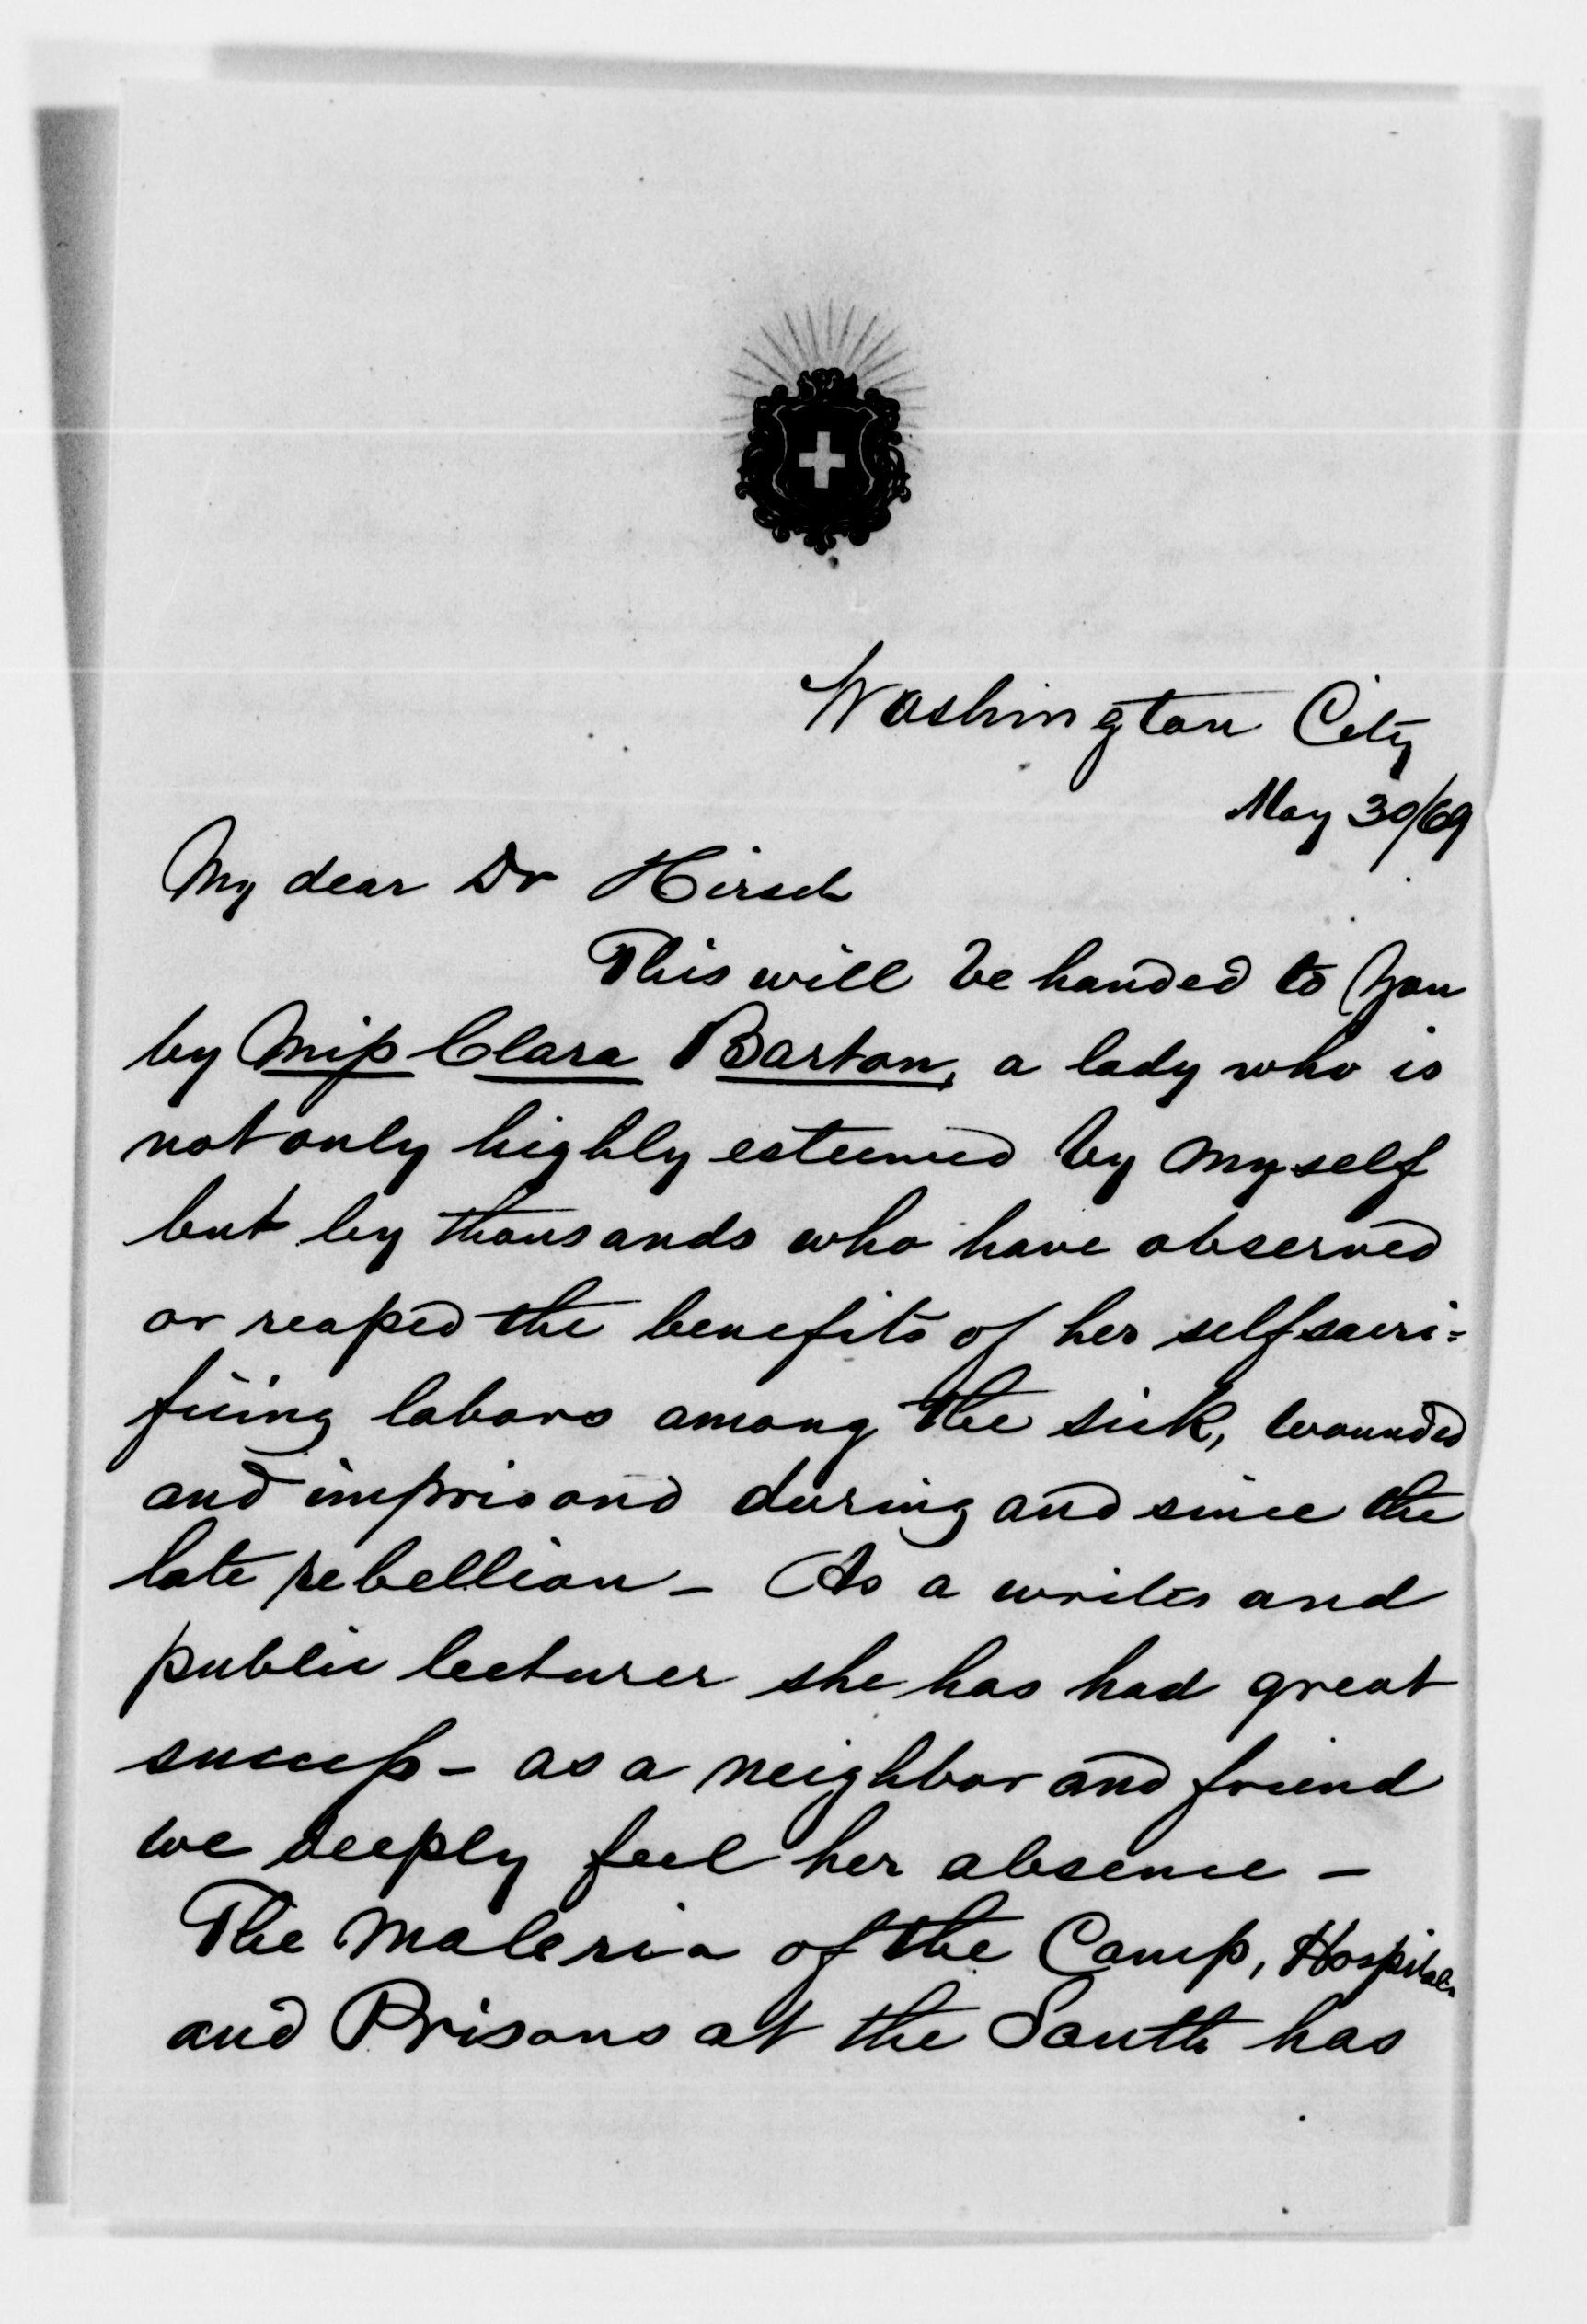 Washington City
May 30/69
My dear Dr Hirsch
This will be handed to you
by Miss Clara Barton, a lady who is
not only highly esteemed by myself
but by thousands who have observed
or reaped the benefits of her selfsacri=
ficing labors among the sick, wounded
and imprisond during and since the
late rebellion - As a writer and
public lecturer she has had great
success - as a neighbor and friend
we deeply feel her absence -
The Maleria of the Camp, Hospitals
and Prisons at the South has